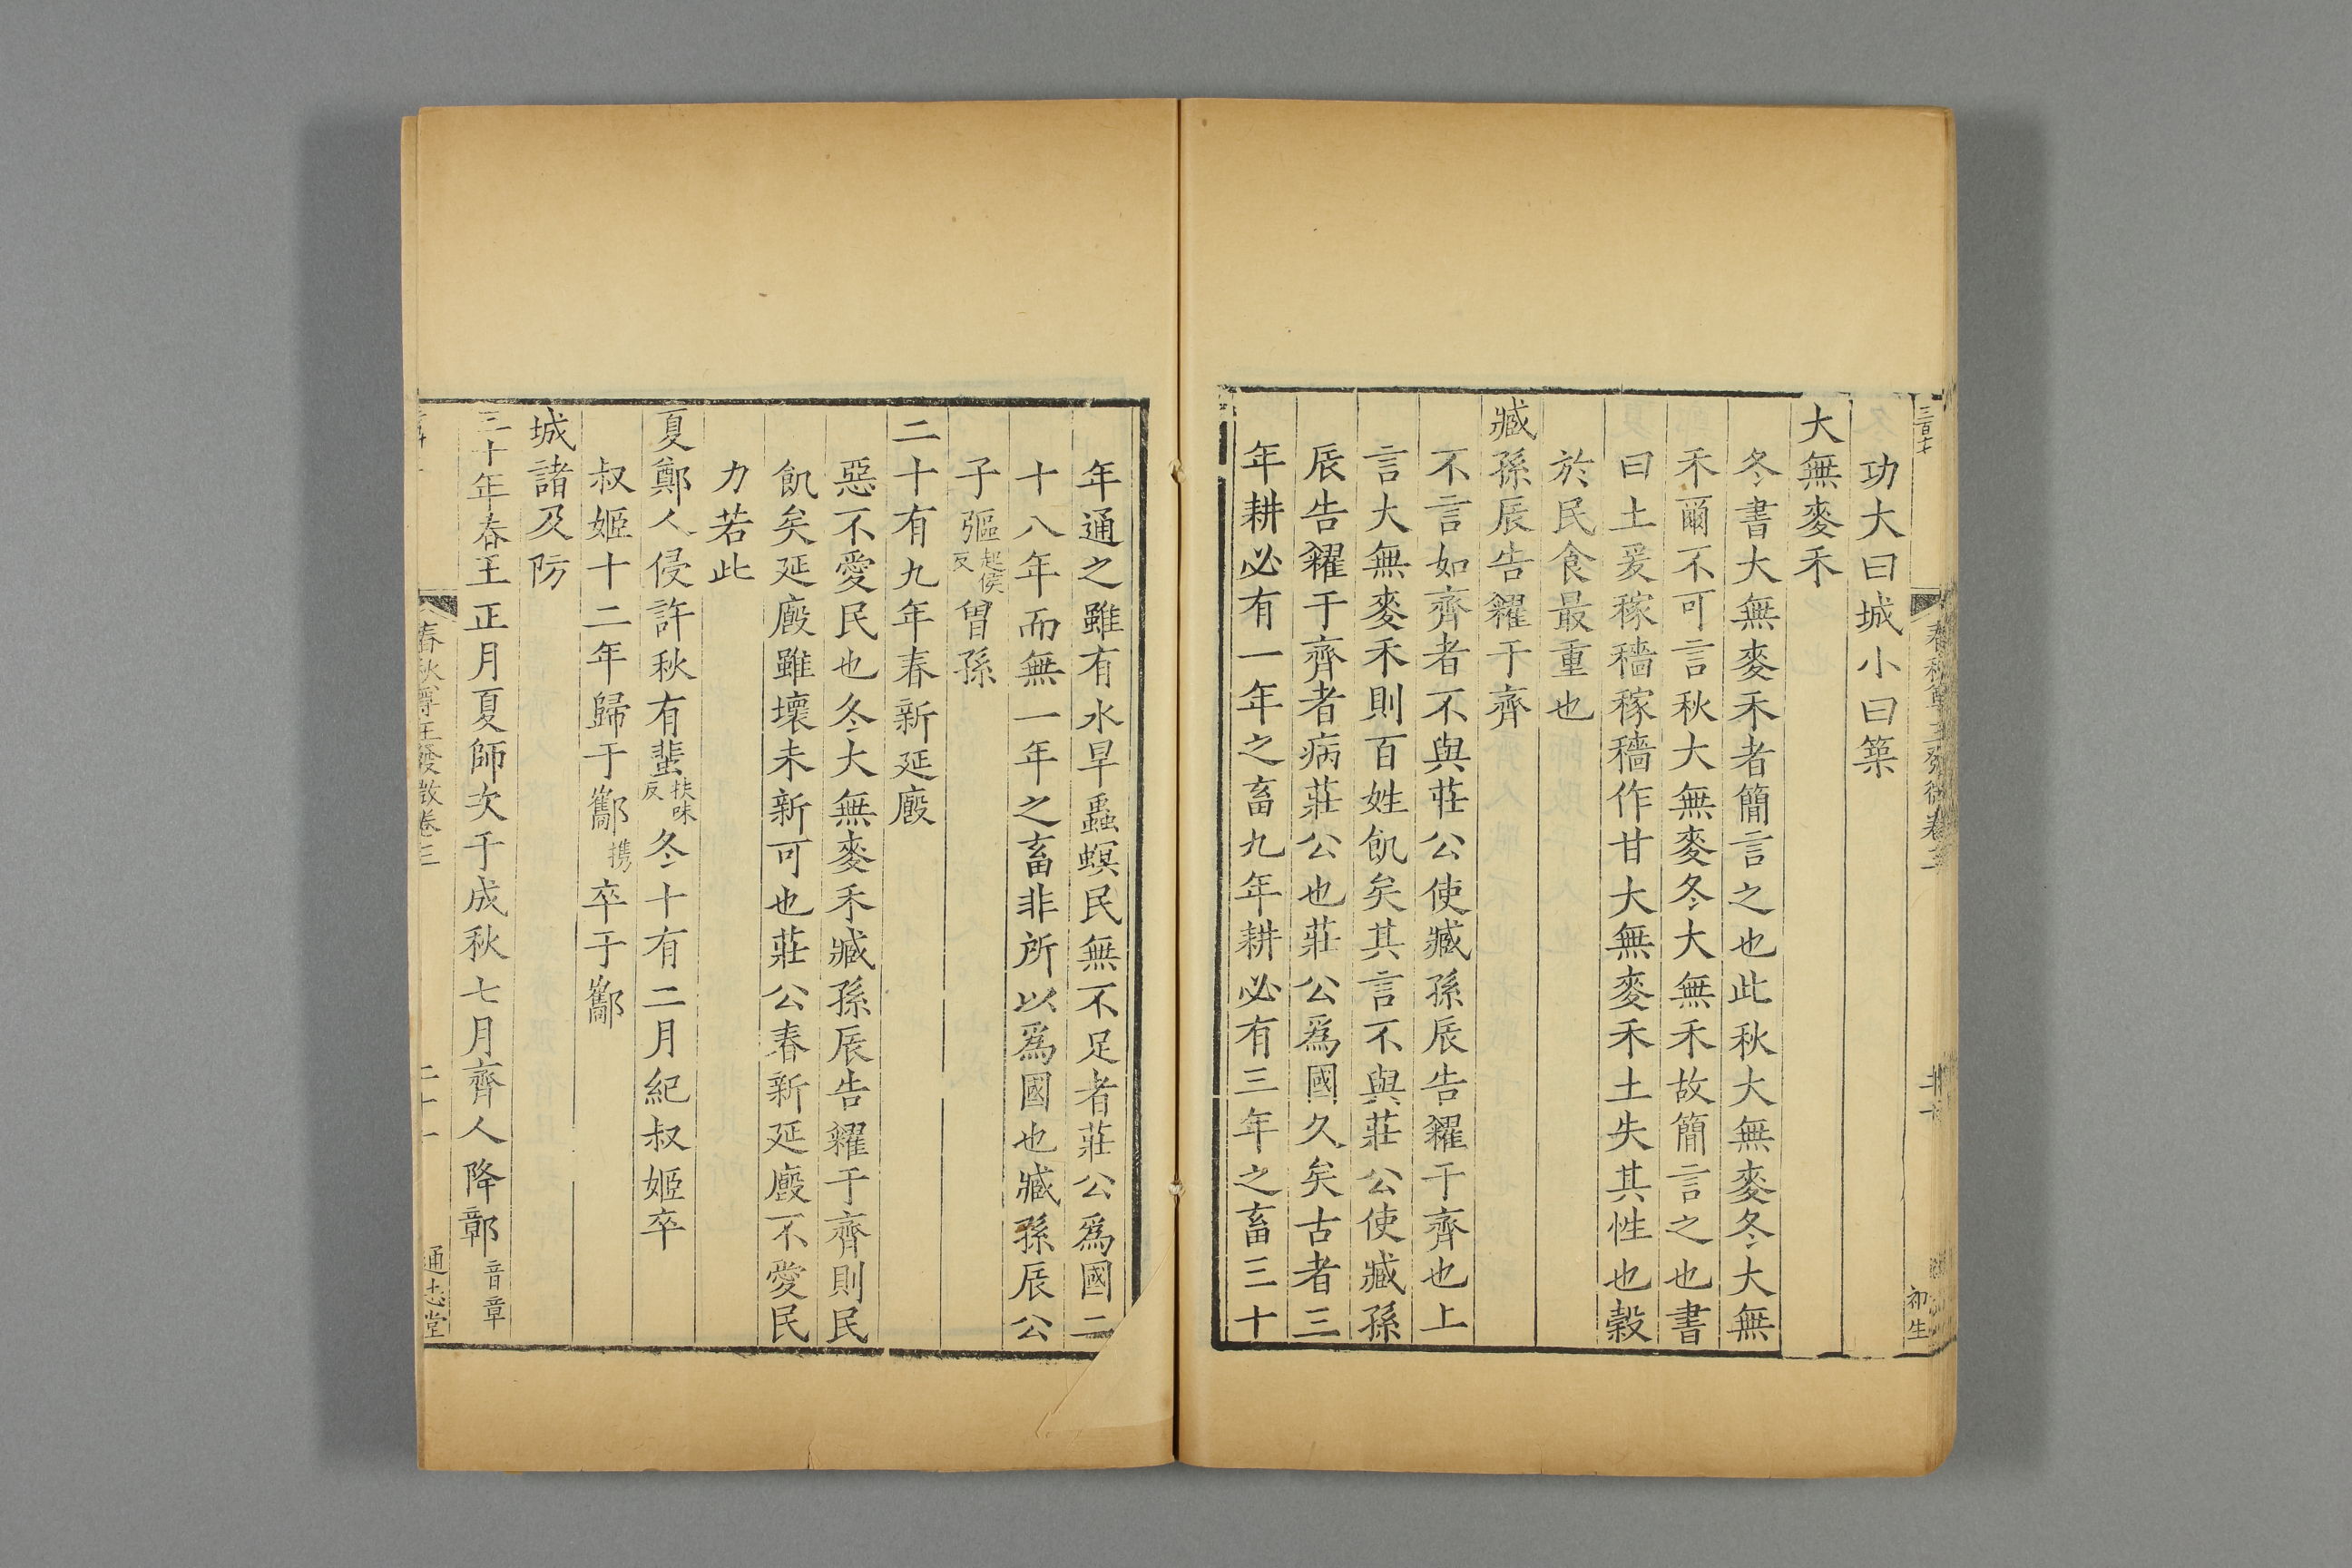 功大曰城小曰築
大無麥禾
冬書大無麥禾者簡言之也此秋大無麥冬大無
禾爾不可言秋大無麥冬大無禾故簡言之也書
曰土爰稼穡稼穡作甘大無麥禾土失其性也穀
於民食最重也
臧孫辰告糴于齊
不言如齊者不與莊公使臧孫辰告糴于齊也上
言大無麥禾則百姓飢矣其言不與莊公使臧孫
辰告糴于齊者病莊公也莊公爲國久矣古者三
年耕必有一年之畜九年耕必有三年之畜三十
年通之雖有水旱蟲螟民無不足者莊公爲國二
十八年而無一年之畜非所以爲國也臧孫辰公
子彄起侯反曾孫
二十有九年春新延廏
惡不愛民也冬大無麥禾臧孫辰告糴于齊則民
飢矣延廏雖壞未新可也莊公春新延廏不愛民
力若此
夏鄭人侵許秋有蜚扶味反冬十有二月紀叔姬卒
叔姬十二年歸于酅攜卒于酅
城諸及防
三十年春王正月夏師次于成秋七月齊人降鄣音章
春秋尊王發微卷三
二十一
通志堂
初生